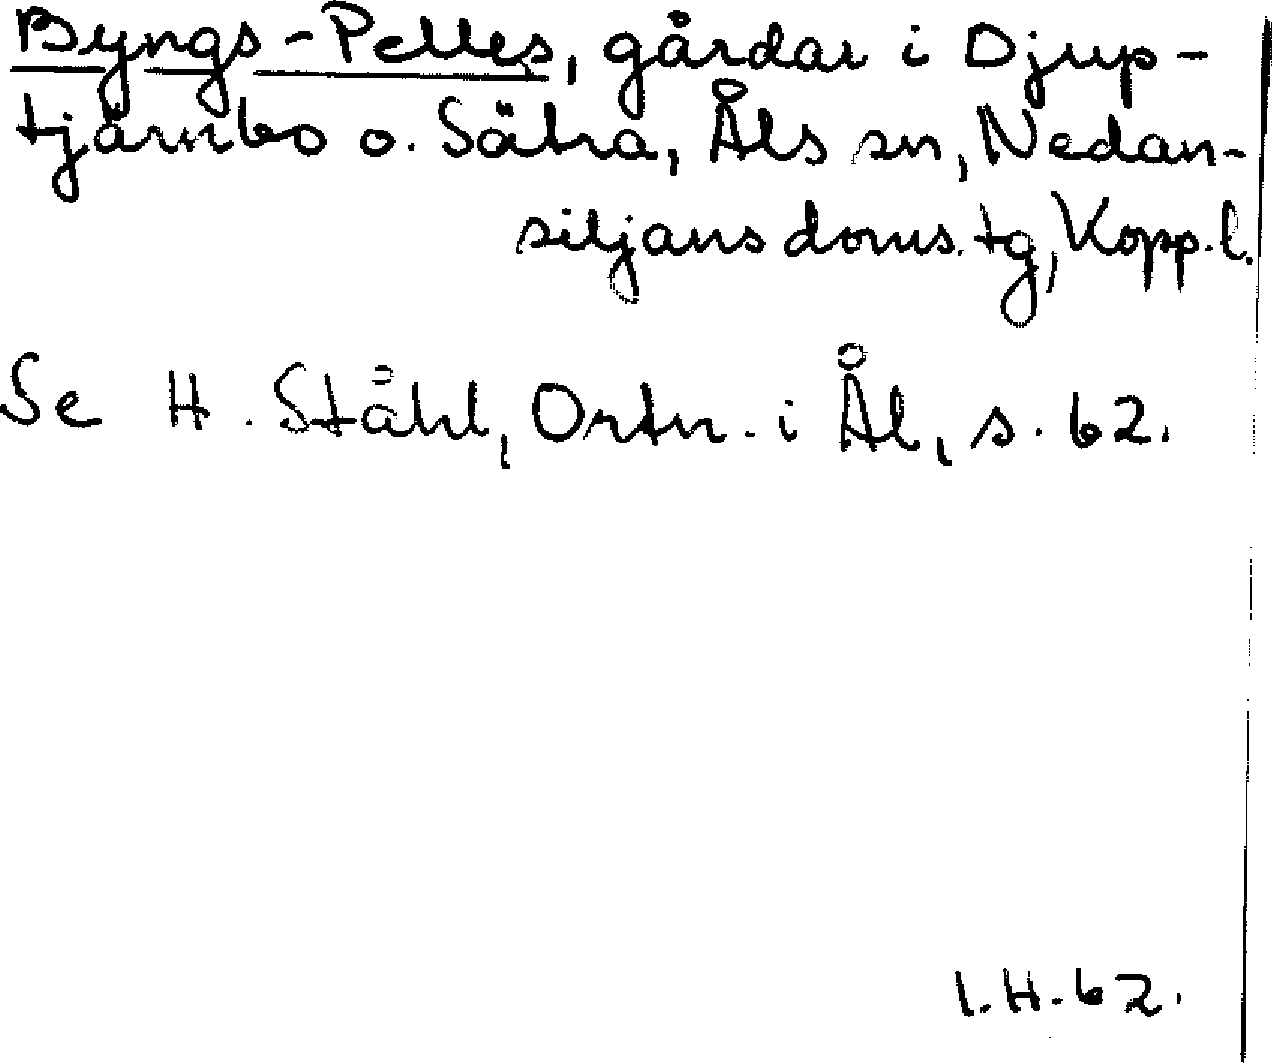 Byngs-Pelles, gårdar i Djup-
tjärnbo o. Sätra, Åls sn, Nedan-
siljans doms. tg, Kopp. l.
Se H. Ståhl, Ortn. i Ål, s. 62.
I.H.62.